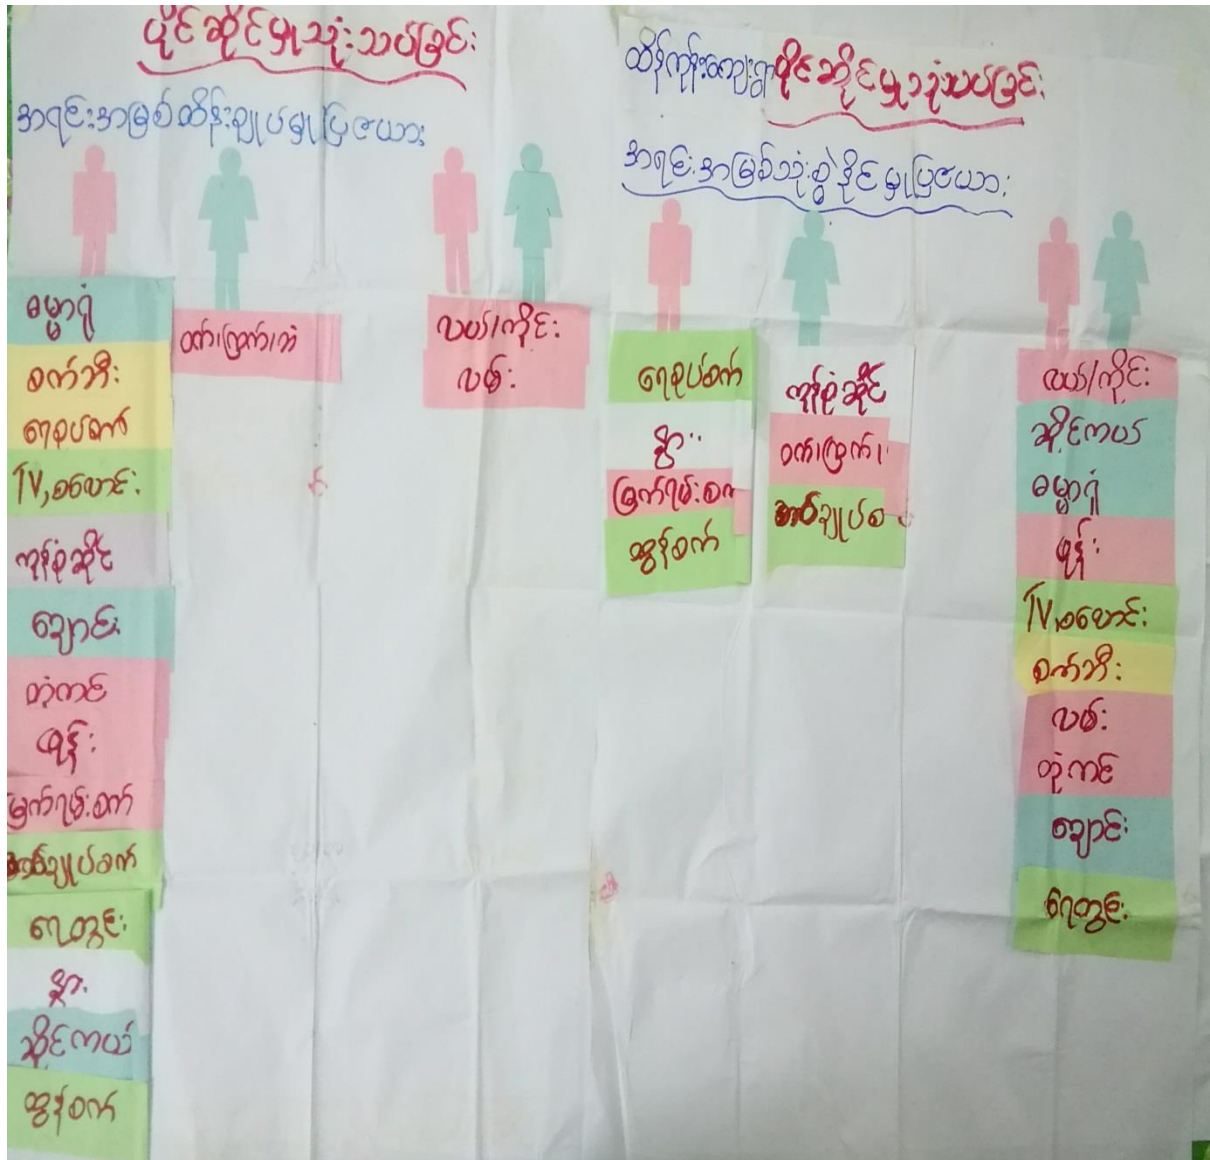 ပိုင်ဆိုင်မှုသုံးသပ်ခြင်း
အရင်းအမြစ်ထိန်းချုပ်မှုပြဇယား
ဓမ္မာရုံ
စက်ဘီး
ရေစုပ်စက်
TV,စလောင်း
ကုန်စုံဆိုင်
ချောင်း
တုံကင်
ဖုန်း
မြက်ရမ်းစက်
အပ်ချုပ်စက်
ရေတွင်း
နွား
ဆိုင်ကယ်
ထွန်စက်
ဝက်၊ကြက်၊ဘဲ
လယ်/ကိုင်း
လမ်း
ထိန်ကုန်းကျေးရွာပိုင်ဆိုင်မှုသုံးသပ်ခြင်း
အရင်းအမြစ်သုံးစွဲနိုင်မှုပြဇယား
ရေစုပ်စက်
နွား
မြက်ရမ်းစက်
ထွန်စက်
ကုန်စုံဆိုင်
ဝက်၊ကြက်၊
အပ်ချုပ်စ
လယ်/ကိုင်း
ဆိုင်ကယ်
ဓမ္မာရုံ
ဖုန်း
TV,စလောင်း
စက်ဘီး
လမ်း
တုံကင်
ချောင်း
ရေတွင်း